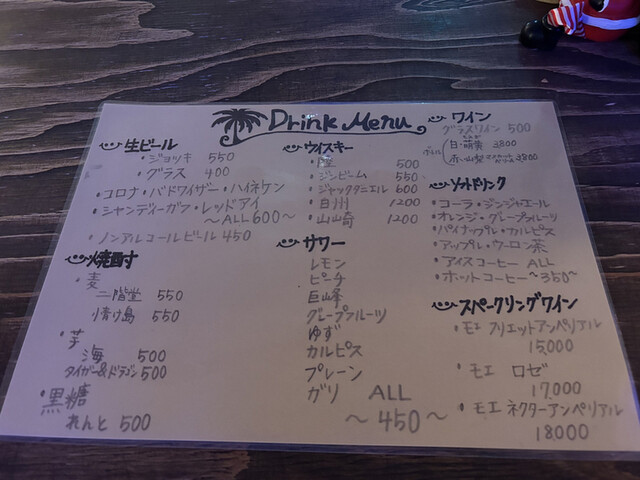 Drink Menu
生ビール
・ジョッキ 550
・グラス 400
・コロナ・バドワイザー・ハイネケン
・シャンディーガフ・レッドアイ
～ALL600～
・ノンアルコールビール 450
焼酎
・麦
二階堂 550
情け島 550
・芋
海 500
タイガー&ドラゴン 500
・黒糖
れんと 500
ウィスキー
・陸 500
・ジンビーム 550
・ジャックダニエル 600
・白州 1200
・山崎 1200
サワー
レモン
ピーチ
巨峰
グレープフルーツ
ゆず
カルピス
プレーン
ガリ ALL
～450～
・ワイン
グラスワイン 500
ボトル
白・ 3800
赤・ 3800
ソフトドリンク
・コーラ・ジンジャエール
・オレンジ・グレープフルーツ
・パイナップル・カルピス
・アップル・ウーロン茶
・アイスコーヒー ALL
・ホットコーヒー ～350～
スペークリングワイン
・モエ ブリエットアンペリアル
15,000
・モエ ロゼ
17,000
・モエ ネクターアンペリアル
18,000